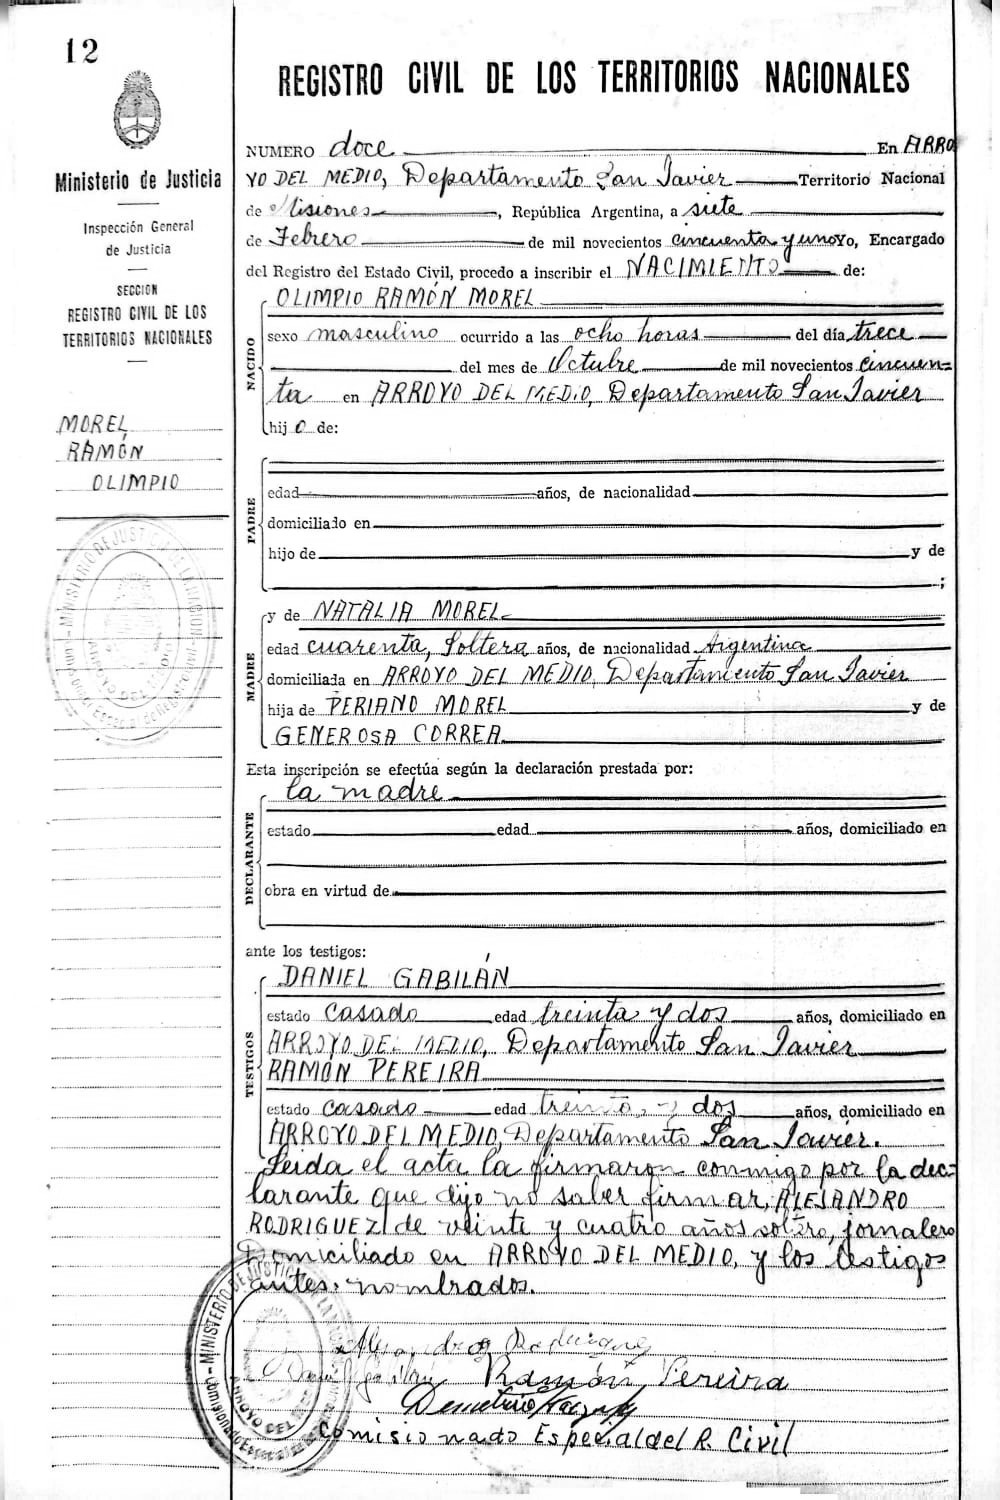 12
REGISTRO CIVIL DE LOS TERRITORIOS NACIONALES
Ministerio de Justicia
Inspección General
de Justicia
SECCION
REGISTRO CIVIL DE LOS
TERRITORIOS NACIONALES
MOREL
RAMÓN
OLIMPIO
NUMERO doce En ARRO
YO DEL MEDIO, Departamento San Javier Territorio Nacional
de Misiones, República Argentina, a siete
de Febrero de mil novecientos cincuenta y uno Yo, Encargado
del Registro del Estado Civil, procedo a inscribir el NACIMIENTO de:
NACIDO
OLIMPIO RAMÓN MOREL
sexo masculino ocurrido a las ocho horas del día trece
del mes de Octubre de mil novecientos cincuen=
ta en ARROYO DEL MEDIO, Departamento San Javier
hijo de:
PADRE
edad años, de nacionalidad
domiciliado en
hijo de y de
;
MADRE
y de NATALIA MOREL
edad cuarenta, Soltera años, de nacionalidad Argentina
domiciliada en ARROYO DEL MEDIO, Departamento San Javier
hija de PERIANO MOREL y de
GENEROSA CORREA
Esta inscripción se efectúa según la declaración prestada por:
DECLARANTE
la madre
estado edad años, domiciliado en
obra en virtud de
ante los testigos:
TESTIGOS
DANIEL GABILÁN
estado casado edad treinta y dos años, domiciliado en
ARROYO DEL MEDIO, Departamento San Javier
RAMÓN PEREIRA
estado casado edad treinta y dos años, domiciliado en
ARROYO DEL MEDIO, Departamento San Javier.
Leida el acta la firmaron conmigo por la dec=
larante que dijo no saber firmar, ALEJANDRO
RODRIGUEZ de veinte y cuatro años soltero, jornalero
Domiciliado en ARROYO DEL MEDIO, y los testigos
antes nombrados.
MINISTERIO DE JUSTICIA
ARROYO DEL
Ramón Pereira
Comisionado Especial del R. Civil